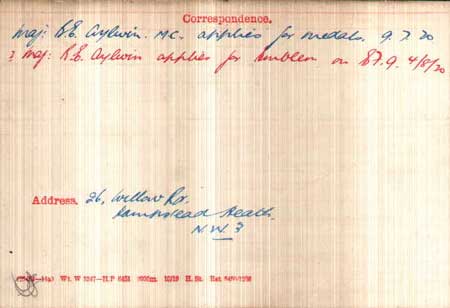 Correspondence.
Maj: R.E. Aylwin. M.C. applies for medals. 9.7.20
Maj: R.E. Aylwin applies for Emblem on 4/8/20
Address. 26, Willow Rd.
Hampstead Heath.
N.W. 3
Wt. W 5347—H.P 10/19 H. St.